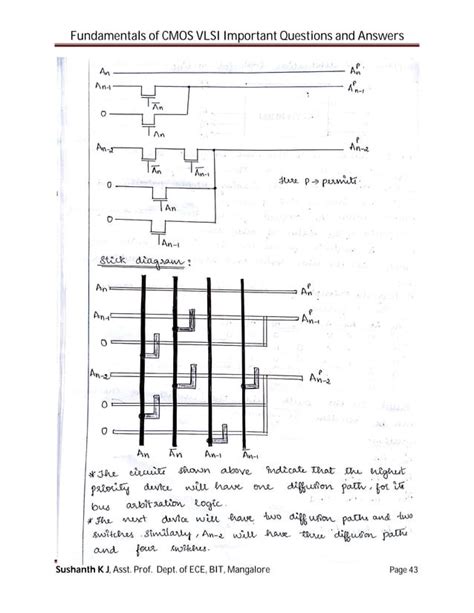 Fundamentals of CMOS VLSI Important Questions and Answers
An
Aₙᵖ
An-1
Aᵖn-1
A̅n
0
An
An-2
Aᵖn-2
A̅n
A̅n-1
Here p → permits.
0
An
0
An-1
Stick diagram :
An
Aᵖn
An-1
Aᵖn-1
0
An-2
Aᵖn-2
0
0
An
A̅n
An-1
A̅n-1
* The circuits shown above indicate that the highest
priority device will have one diffusion path, for its
bus arbitration logic.
* The next device will have two diffusion paths and two
switches. Similarly, An-2 will have three diffusion paths
and four switches.
Sushanth K J, Asst. Prof. Dept. of ECE, BIT, Mangalore Page 43